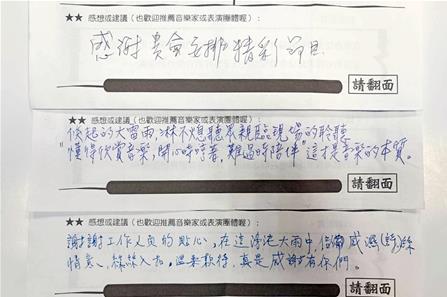 ★★ 感想或建議（也歡迎推薦音樂家或表演團體喔）：
感謝貴會安排精彩節目
請翻面
★★ 感想或建議（也歡迎推薦音樂家或表演團體喔）：
的大雷雨，淋不熄聽眾親臨現場的聆聽
"懂得欣賞音樂，開心時待著，難過時陪伴"這才是音樂的本質。
請翻面
★★ 感想或建議（也歡迎推薦音樂家或表演團體喔）：
謝謝工作人員的貼心，在這滂沱大雨中，備感溫(絲)絲
情意，絲絲入扣，溫柔款待，真是感謝有你們。
請翻面